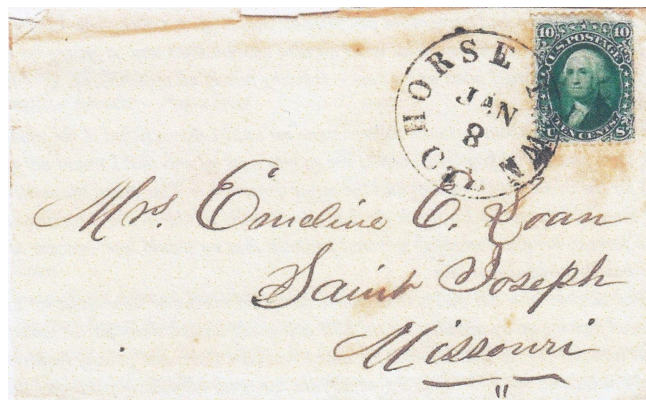 HORSE
JAN
8
10 U.S. POSTAGE 10
TEN CENTS
U S
Mrs. Emeline C. Loan
Saint Joseph
Missouri